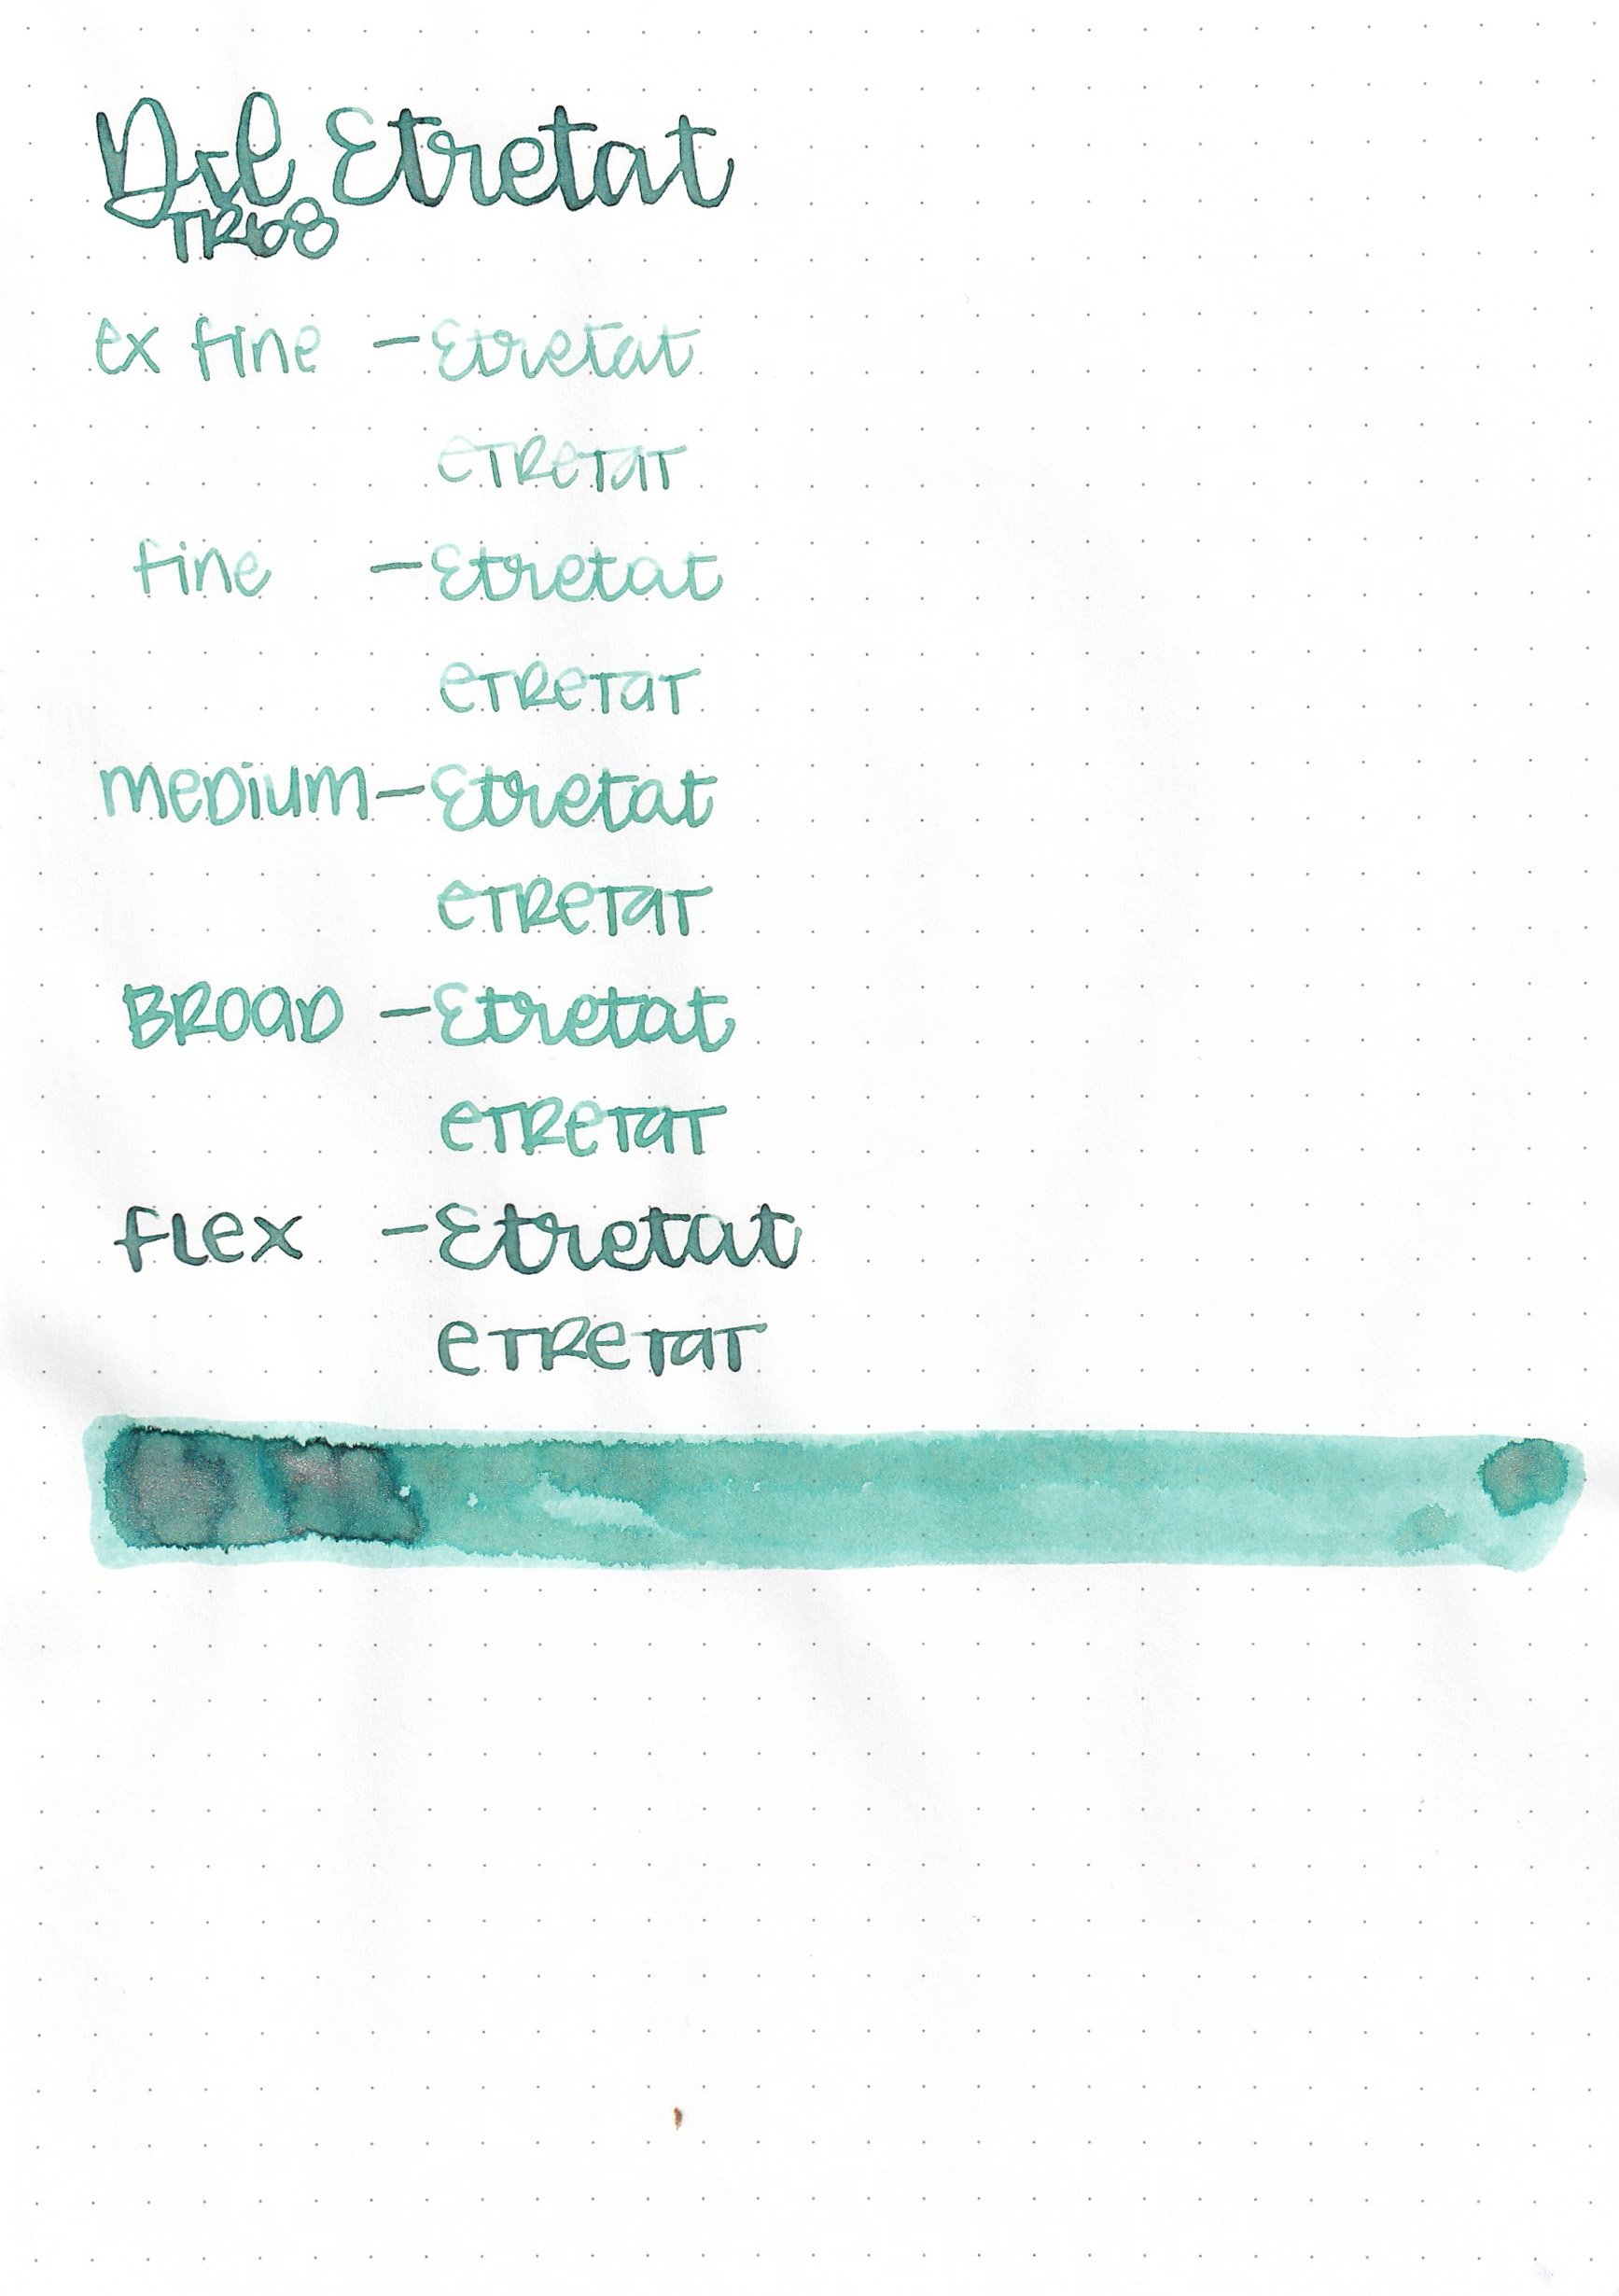 Etretat
TR68
ex fine - Etretat
eTReTaT
fine - Etretat
eTReTaT
meDium - Etretat
eTReTaT
BROaD - Etretat
eTReTaT
fLex - Etretat
eTReTaT